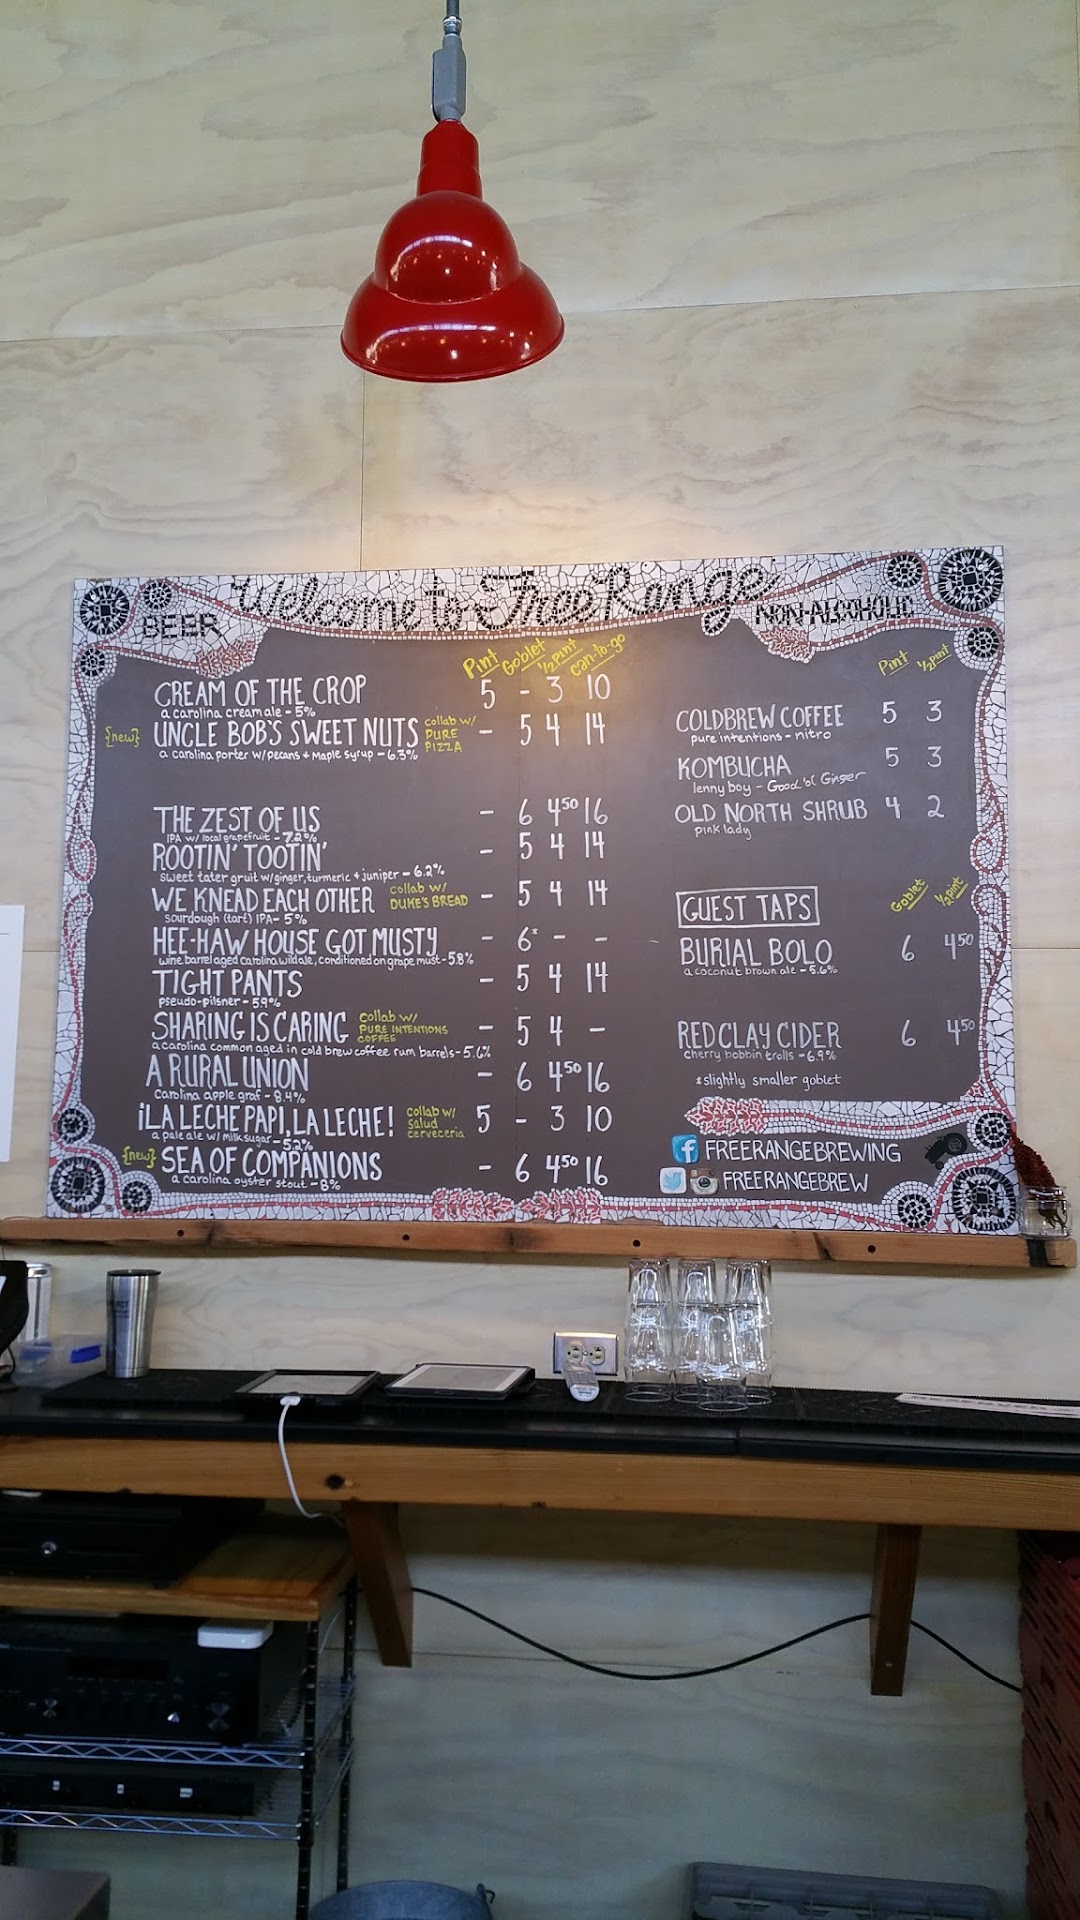 Welcome to Free Range
BEER
Pint Goblet ½ Pint can-to-go
CREAM OF THE CROP 5 - 3 10
a carolina cream ale - 5%
{new} UNCLE BOB'S SWEET NUTS collab w/ PURE PIZZA - 5 4 14
a carolina porter w/ pecans + maple syrup - 6.3%
THE ZEST OF US - 6 4⁵⁰ 16
IPA w/ local grapefruit - 7.2%
ROOTIN' TOOTIN' - 5 4 14
sweet tater gruit w/ ginger, turmeric + juniper - 6.2%
WE KNEAD EACH OTHER collab w/ DUKE'S BREAD - 5 4 14
sourdough (tart) IPA - 5%
HEE-HAW HOUSE GOT MUSTY - 6* - -
wine barrel aged carolina wild ale, conditioned on grape must - 5.8%
TIGHT PANTS - 5 4 14
pseudo-pilsner - 5.9%
SHARING IS CARING collab w/ PURE INTENTIONS COFFEE - 5 4 -
a carolina common aged in cold brew coffee rum barrels - 5.6%
A RURAL UNION - 6 4⁵⁰ 16
Carolina apple graf - 8.4%
¡LA LECHE PAPI, LA LECHE! collab w/ salud cerveceria 5 - 3 10
a pale ale w/ milk sugar - 5.2%
{new} SEA OF COMPANIONS - 6 4⁵⁰ 16
a carolina oyster stout - 8%
NON-ALCOHOLIC
Pint ½ pint
COLDBREW COFFEE 5 3
pure intentions - nitro
KOMBUCHA 5 3
lenny boy - Good 'ol Ginger
OLD NORTH SHRUB 4 2
pink lady
Goblet ½ pint
GUEST TAPS
BURIAL BOLO 6 4⁵⁰
a coconut brown ale - 5.6%
RED CLAY CIDER 6 4⁵⁰
cherry bobbin trolls - 6.9%
*slightly smaller goblet
f FREERANGEBREWING
FREERANGEBREW